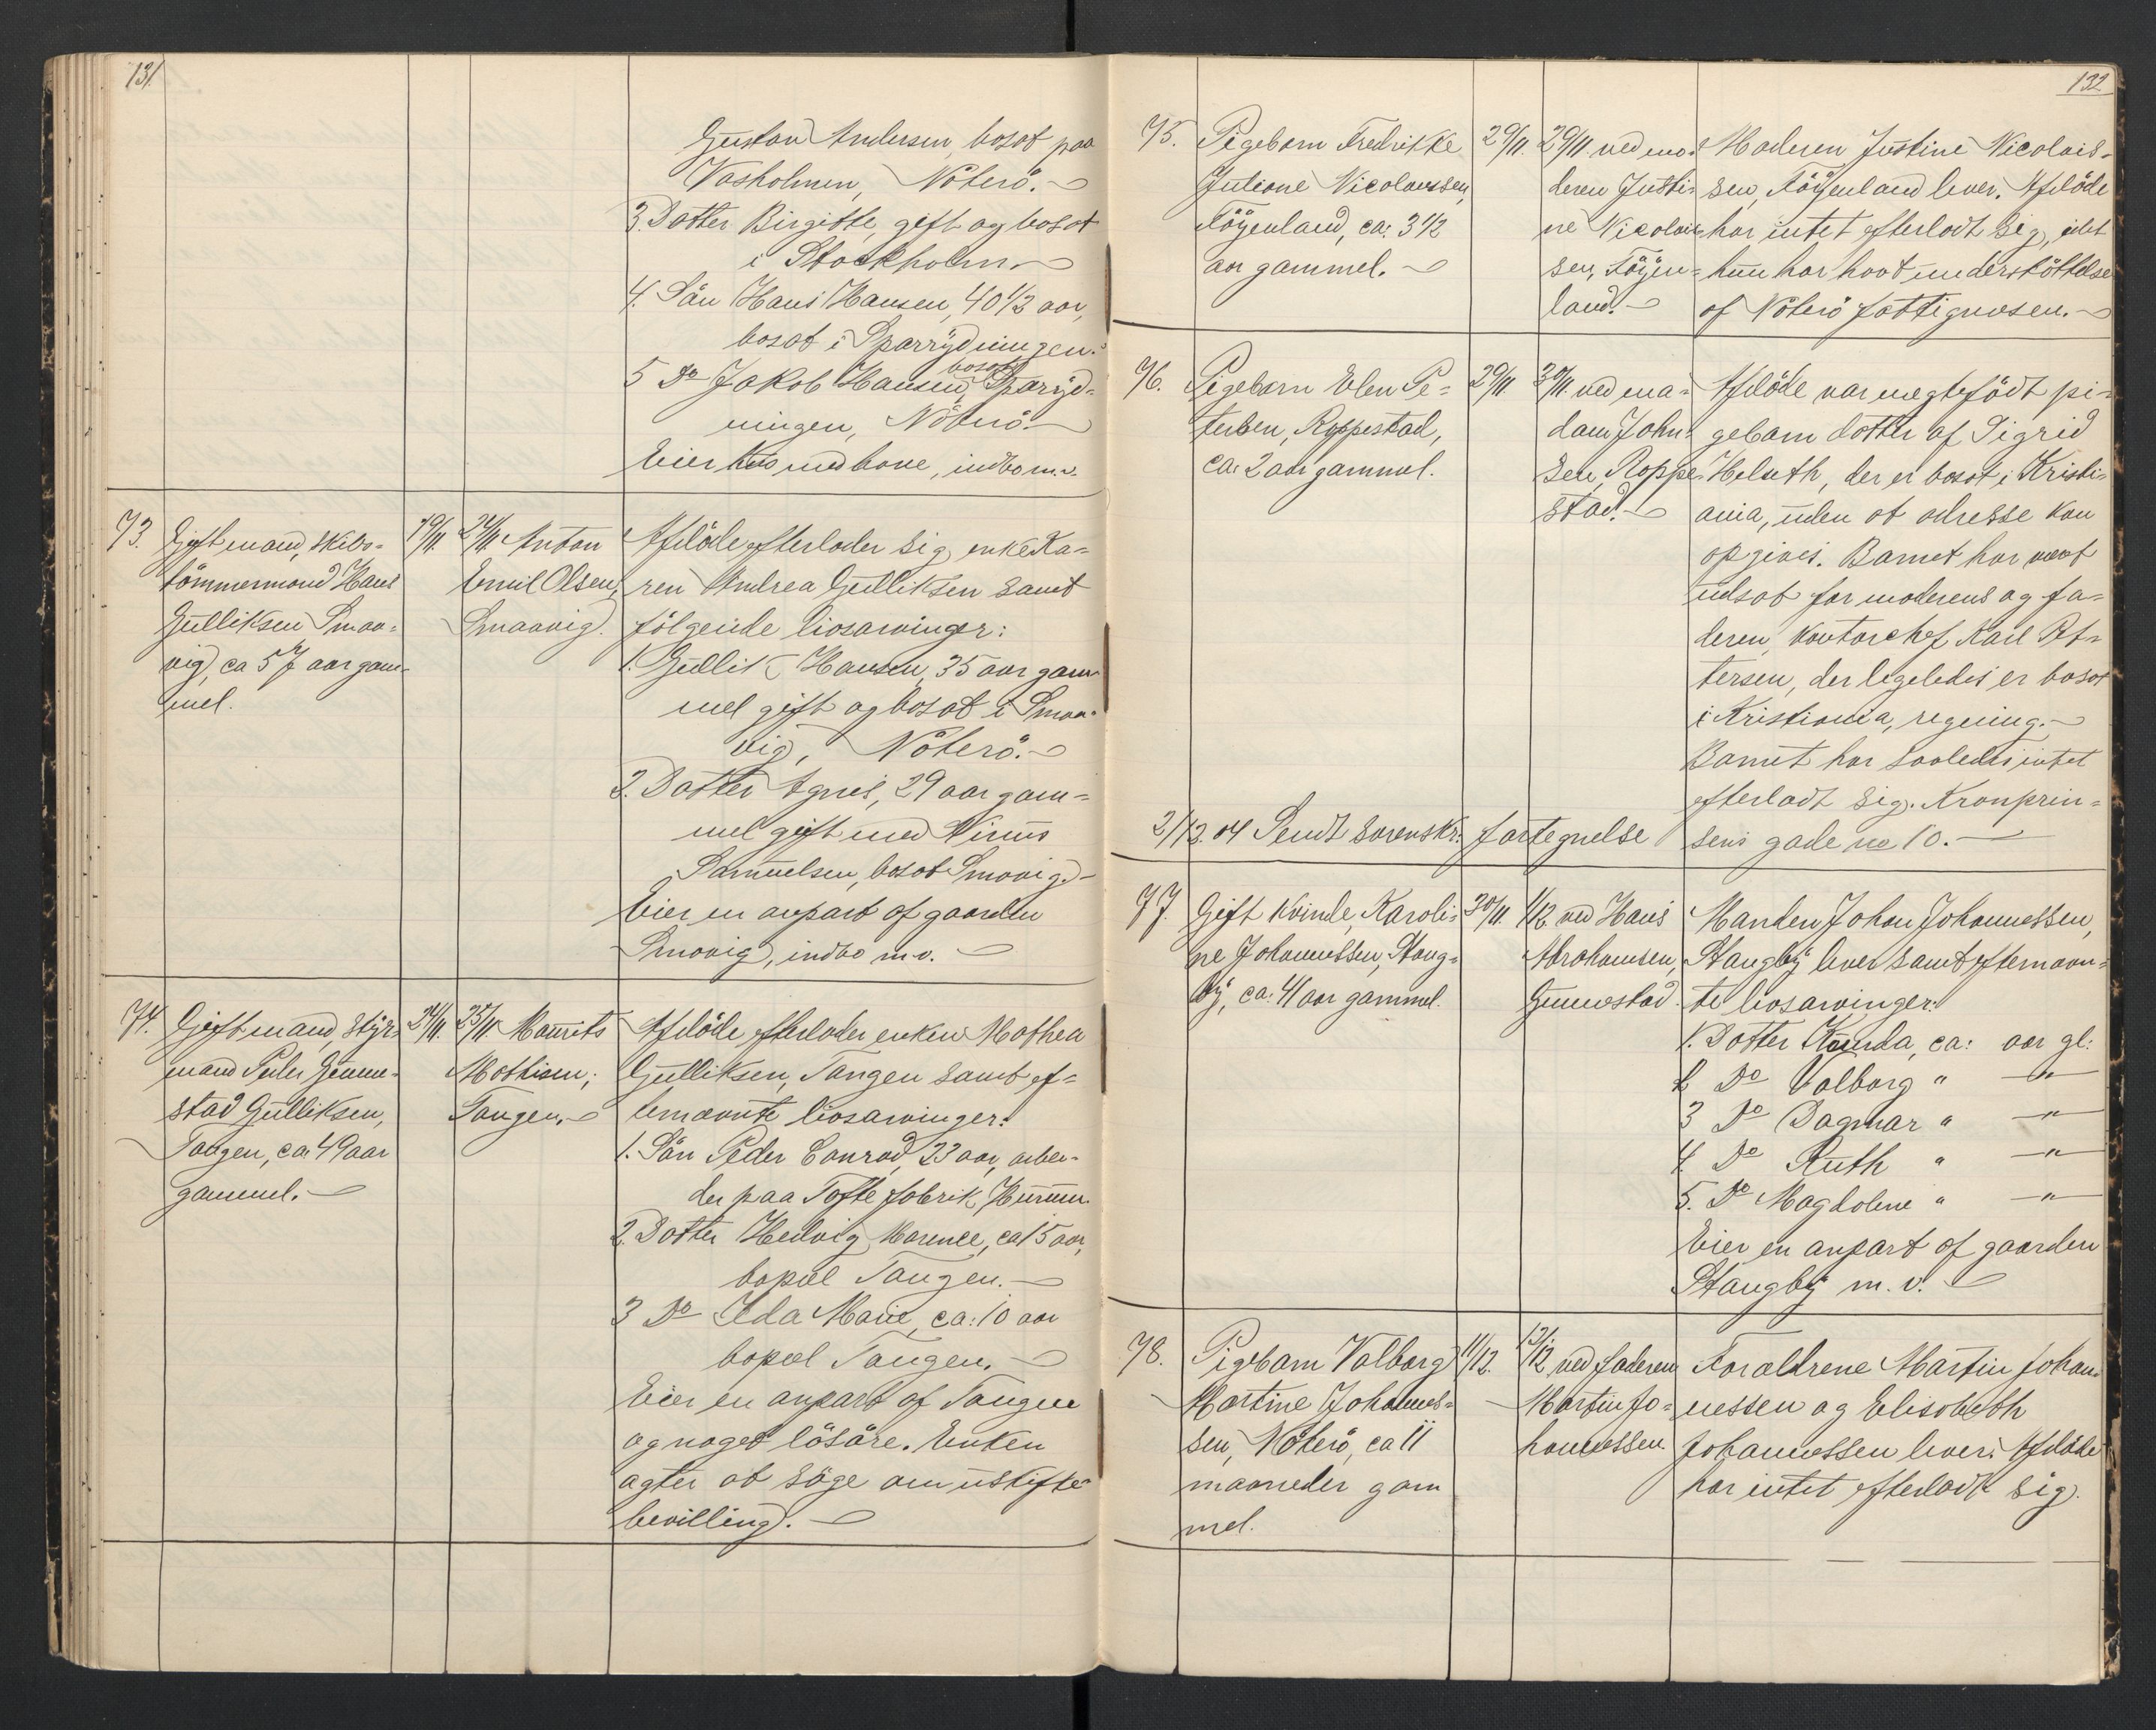 131.
Gustav Andersen, bosat paa
Vasholmen, Nøterø.
3. Datter Birgitte, gift og bosat
i Stockholm.
4. Søn Hans Hansen, 40 1/2 aar,
bosat i Sparrydningen.
5 Do Jakob Hansen, bosat Sparyd-
ningen, Nøterø.
Eier hus med have, indbo m.v.
73. Gift mand, skibs-
tømmermand Hans
Gulliksen Smaa-
vig, ca 57 aar gam-
mel.
19/11.
24/11. Anton
Emil Olsen,
Smaavig.
Afdøde efterlader sig enke Ka-
ren Andrea Gulliksen samt
følgende livsarvinger:
1. Gullik Hansen, 35 aar gam-
mel gift og bosat i Smaa-
vig, Nøterø.
2. Datter Agnes, 29 aar gam-
mel gift med
Samuelsen, bosat Smovig.
Eier en anpart af gaarden
Smovig, indbo m.v.
74. Gift mand, styr-
mand Peder Gunne-
stad Gulliksen,
Tangen, ca 49 aar
gammel.
24/11.
25/11. Maurits
Mathisen,
Tangen.
Afdøde efterlader enken Mathea
Gulliksen, Tangen samt ef-
ternævnte livsarvinger:
1. Søn Peder Conrad, 23 aar, arbei-
der paa Tofte fabrik, Hurum.
2. Datter Hedvig Marence, ca 15 aar,
bopæl Tangen.
3 Do Ida Marie, ca: 10 aar
bopæl Tangen.
Eier en anpart af Tangen
og noget løsøre. Enken
agter at søge om uskifte-
bevilling.
132
75. Pigebarn Fredrikke
Juliane Nicolaissen,
Føyenland, ca: 3 1/2
aar gammel.
29/11.
29/11 ved mo-
deren Justi-
ne Nicolais-
sen, Føyen-
land.
Moderen Justine Nicolais-
sen, Føyenland lever. Afdøde
har intet efterladt sig, idet
hun har havt understøttelse
af Nøterø fattigvæsen.
76. Pigebarn Elen Pe-
tersen, Roppestad,
ca: 2 aar gammel.
29/11.
30/11 ved ma-
dam John-
sen, Roppe-
stad.
Afdøde var uægtefødt pi-
gebarn datter af Sigrid
Helseth, der er bosat i Kristi-
ania, uden at adresse kan
opgives. Barnet har været
udsat for moderens og fa-
deren, kontorchef Karl Pet-
tersen, der legeledes er bosat
i Kristiania, regning.
Barnet har saaledes intet
efterladt sig. Kronprin-
sens gade no 10.
2/12.04 Sendt sorenskr. fortegnelse
77. Gift kvinde, Karoli-
ne Johannessen, Stang-
by, ca: 41 aar gammel.
30/11.
1/12. ved Hans
Abrahamsen,
Gunnestad.
Manden Johan Johannessen,
Stangby lever samt efternævn-
te livsarvinger:
1. Datter Kunda, ca: aar gl:
2 Do Valborg " — " —
3 Do Dagmar " — " —
4. Do Ruth " — " —
5. Do Magdolene " — " —
Eier en anpart af gaarden
Stangby m.v.
78. Pigebarn Valborg
Martine Johannes-
sen, Nøterø, ca 11
maaneder gam
mel.
11/12.
12/12 ved faderen
Martin Jo-
hannessen
Forældrene Martin Johan-
nessen og Elisabeth
Johannessen lever. Afdøde
har intet efterladt sig.